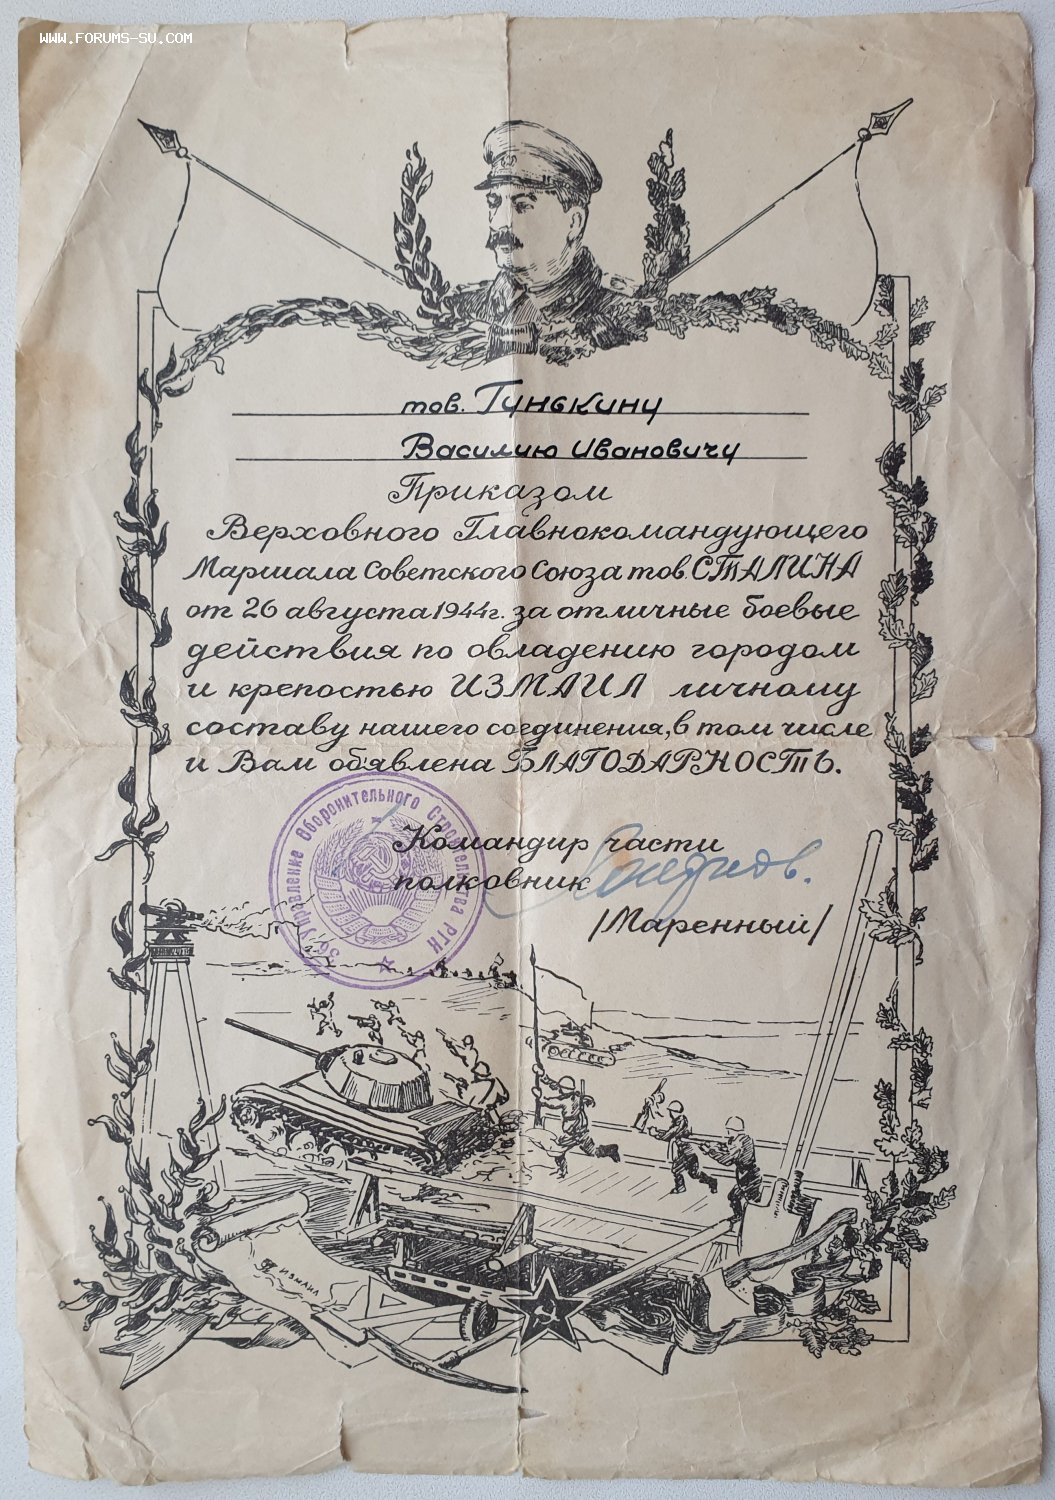 WWW.FORUMS-SU.COM
тов. Гунькину
Василию Ивановичу
Приказом
Верховного Главнокомандующего
Маршала Советского Союза тов. СТАЛИНА
от 26 августа 1944г. за отличные боевые
действия по овладению городом
и крепостью ИЗМАИЛ личному
составу нашего соединения, в том числе
и Вам объявлена БЛАГОДАРНОСТЬ.
Командир части
полковник
/Маренный/
36 Управление Оборонительного Строительства РГК
ИЗМАИЛ